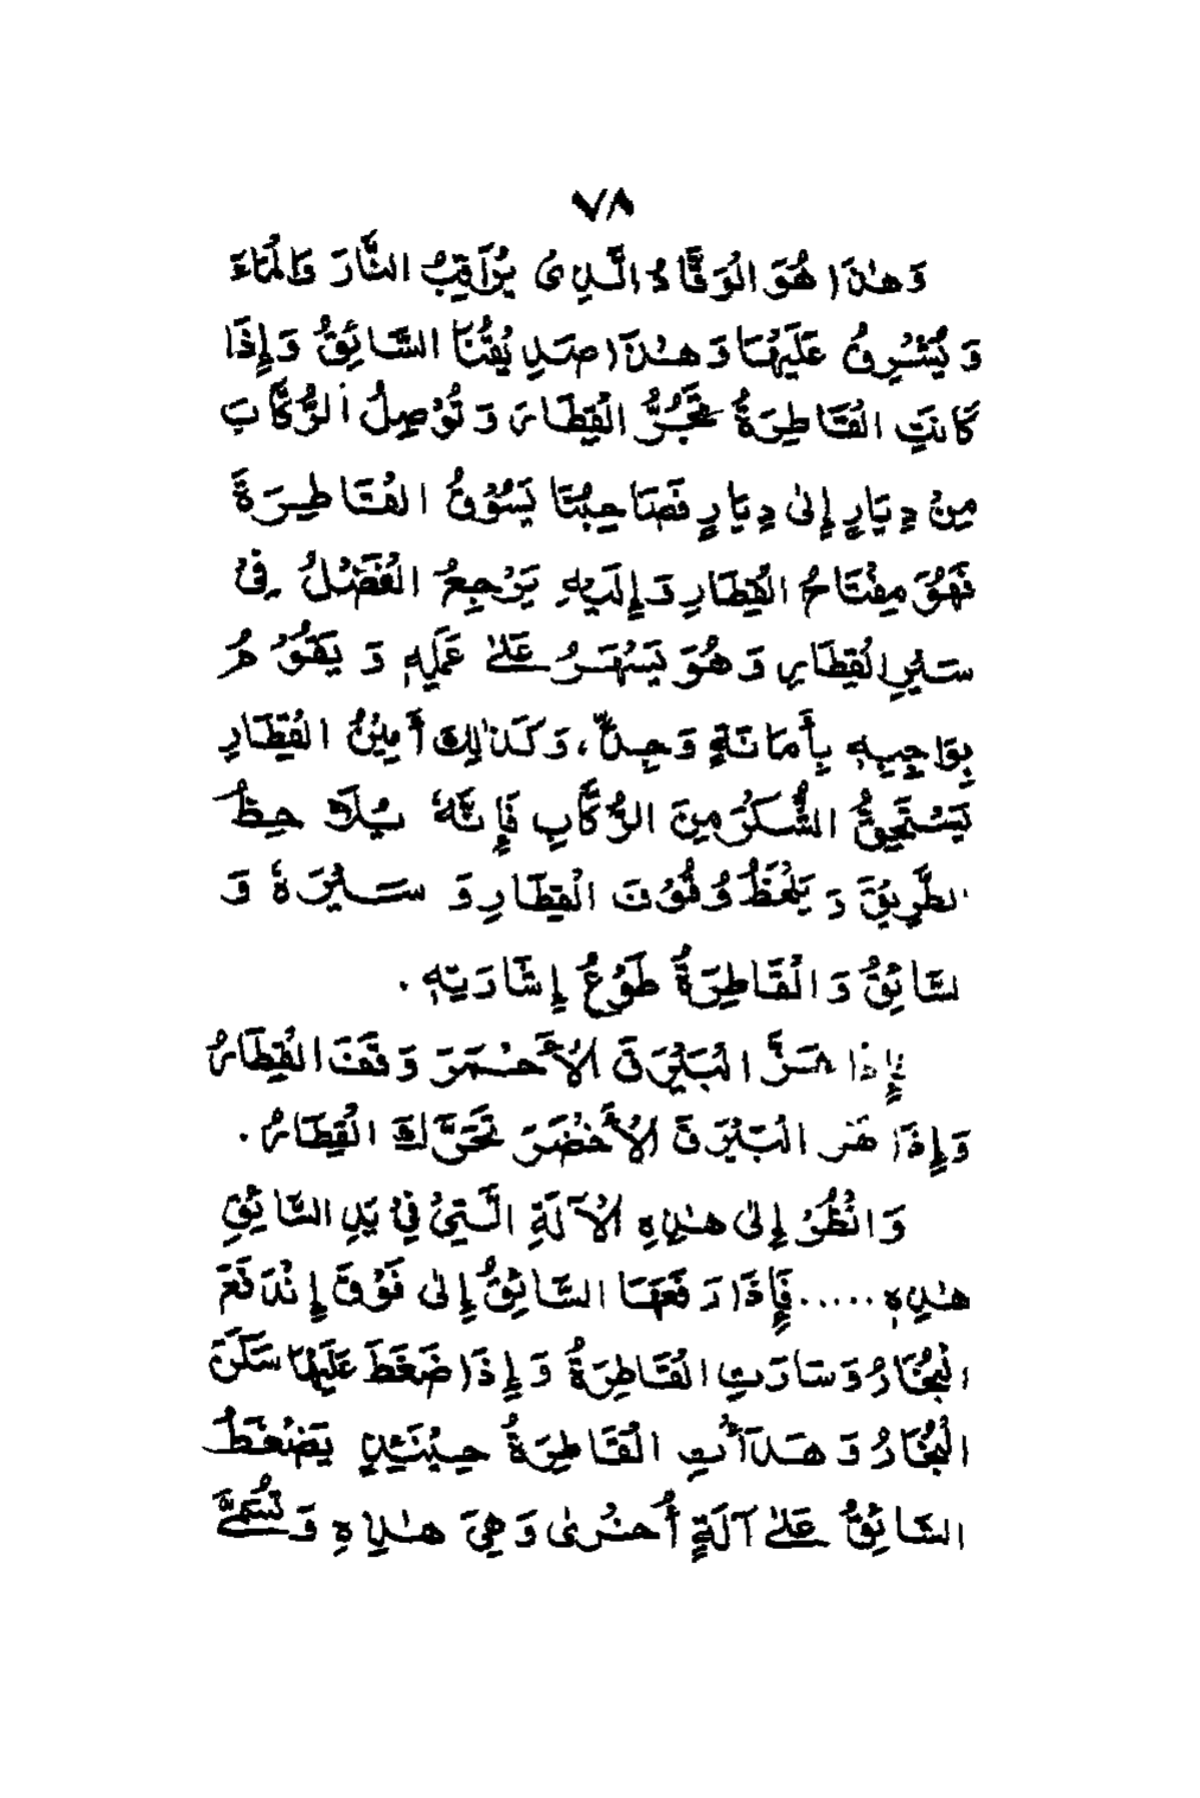 ٧٨
وَهٰذَا هُوَ الْوَقَّادُ الَّذِى يُرَاقِبُ النَّارَ وَالْمَاءَ
وَيُشْرِفُ عَلَيْهَا وَهٰذَا صَدِيْقُنَا السَّائِقُ وَإِذَا
كَانَتِ الْقَاطِرَةُ تَجُرُّ الْقِطَارَ وَتُوْصِلُ الرُّكَّابَ
مِنْ دِيَارٍ إِلىٰ دِيَارٍ فَصَاحِبُنَا يَسُوْقُ الْقَاطِرَةَ
فَهُوَ مِفْتَاحُ الْقِطَارِ وَإِلَيْهِ يَرْجِعُ الْفَضْلُ فِىْ
سَيْرِ الْقِطَارِ وَهُوَ يَسْهَرُ عَلىٰ عَمَلِهٖ وَيَقُوْمُ
بِوَاجِبِهٖ بِأَمَانَةٍ وَجِدٍّ، وَكَذٰلِكَ أَمِيْنُ الْقِطَارِ
يَسْتَحِقُّ الشُّكْرَ مِنَ الرُّكَّابِ فَإِنَّهٗ يُلَاحِظُ
الطَّرِيْقَ وَيَلْحَظُ وُقُوْفَ الْقِطَارِ وَسَيْرَهٗ وَ
السَّائِقُ وَالْقَاطِرَةُ طَوْعُ إِشَارَتِهٖ .
فَإِذَا هَزَّ الْبَيْرَقَ الْأَحْمَرَ وَقَفَ الْقِطَارُ
وَإِذَا هَزَّ الْبَيْرَقَ الْأَخْضَرَ تَحَرَّكَ الْقِطَارُ .
وَانْظُرْ إِلىٰ هٰذِهِ الْآلَةِ الَّتِيْ فِيْ يَدِ السَّائِقِ
هٰذِهٖ ..... فَإِذَا رَفَعَهَا السَّائِقُ إِلىٰ فَوْقَ إِنْدَفَعَ
الْبُخَارُ وَسَارَتِ الْقَاطِرَةُ وَإِذَا ضَغَطَ عَلَيْهَا سَكَنَ
الْبُخَارُ وَهَدَأَتِ الْقَاطِرَةُ حِيْنَئِذٍ يَضْغَطُ
السَّائِقُ عَلىٰ آلَةٍ أُخْرىٰ وَهِيَ هٰذِهِ وَتُسَمّٰى